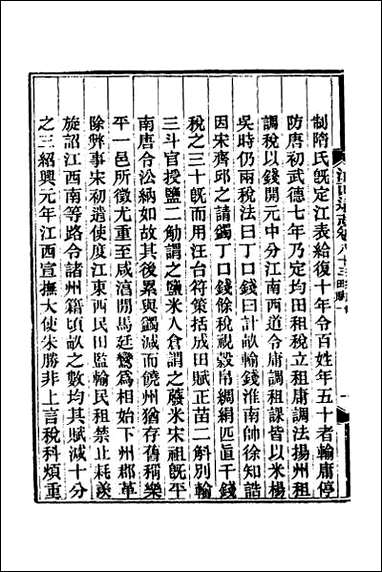 制隋氏旣定江表給復十年令百姓年五十者輸庸停
防唐初武德七年乃定均田租稅立租庸調法揚州租
調稅以錢開元中分江南西道令庸調租課皆以米楊
吳時仍兩稅法曰丁口錢曰計畝輸錢淮南帥徐知誥
因宋齊邱之請蠲丁口錢餘稅視穀帛綢絹匹直千錢
稅之三十旣而用汪台符策括成田賦正苗二斛別輸
三斗官授鹽二觔謂之鹽米人倉謂之廢米宋祖旣平
南唐令沿納如故其後累與蠲減而饒州猶存舊稱樂
平一邑所徵尤重至咸淳閒馬廷鸞爲相始下州郡革
除弊事宋初遣使度江東西民田監輸民租禁止耗羨
旋詔江西南等路令諸州籍頃畝之數均其賦減十分
之三紹興元年江西宣撫大使朱勝非上言稅科煩重